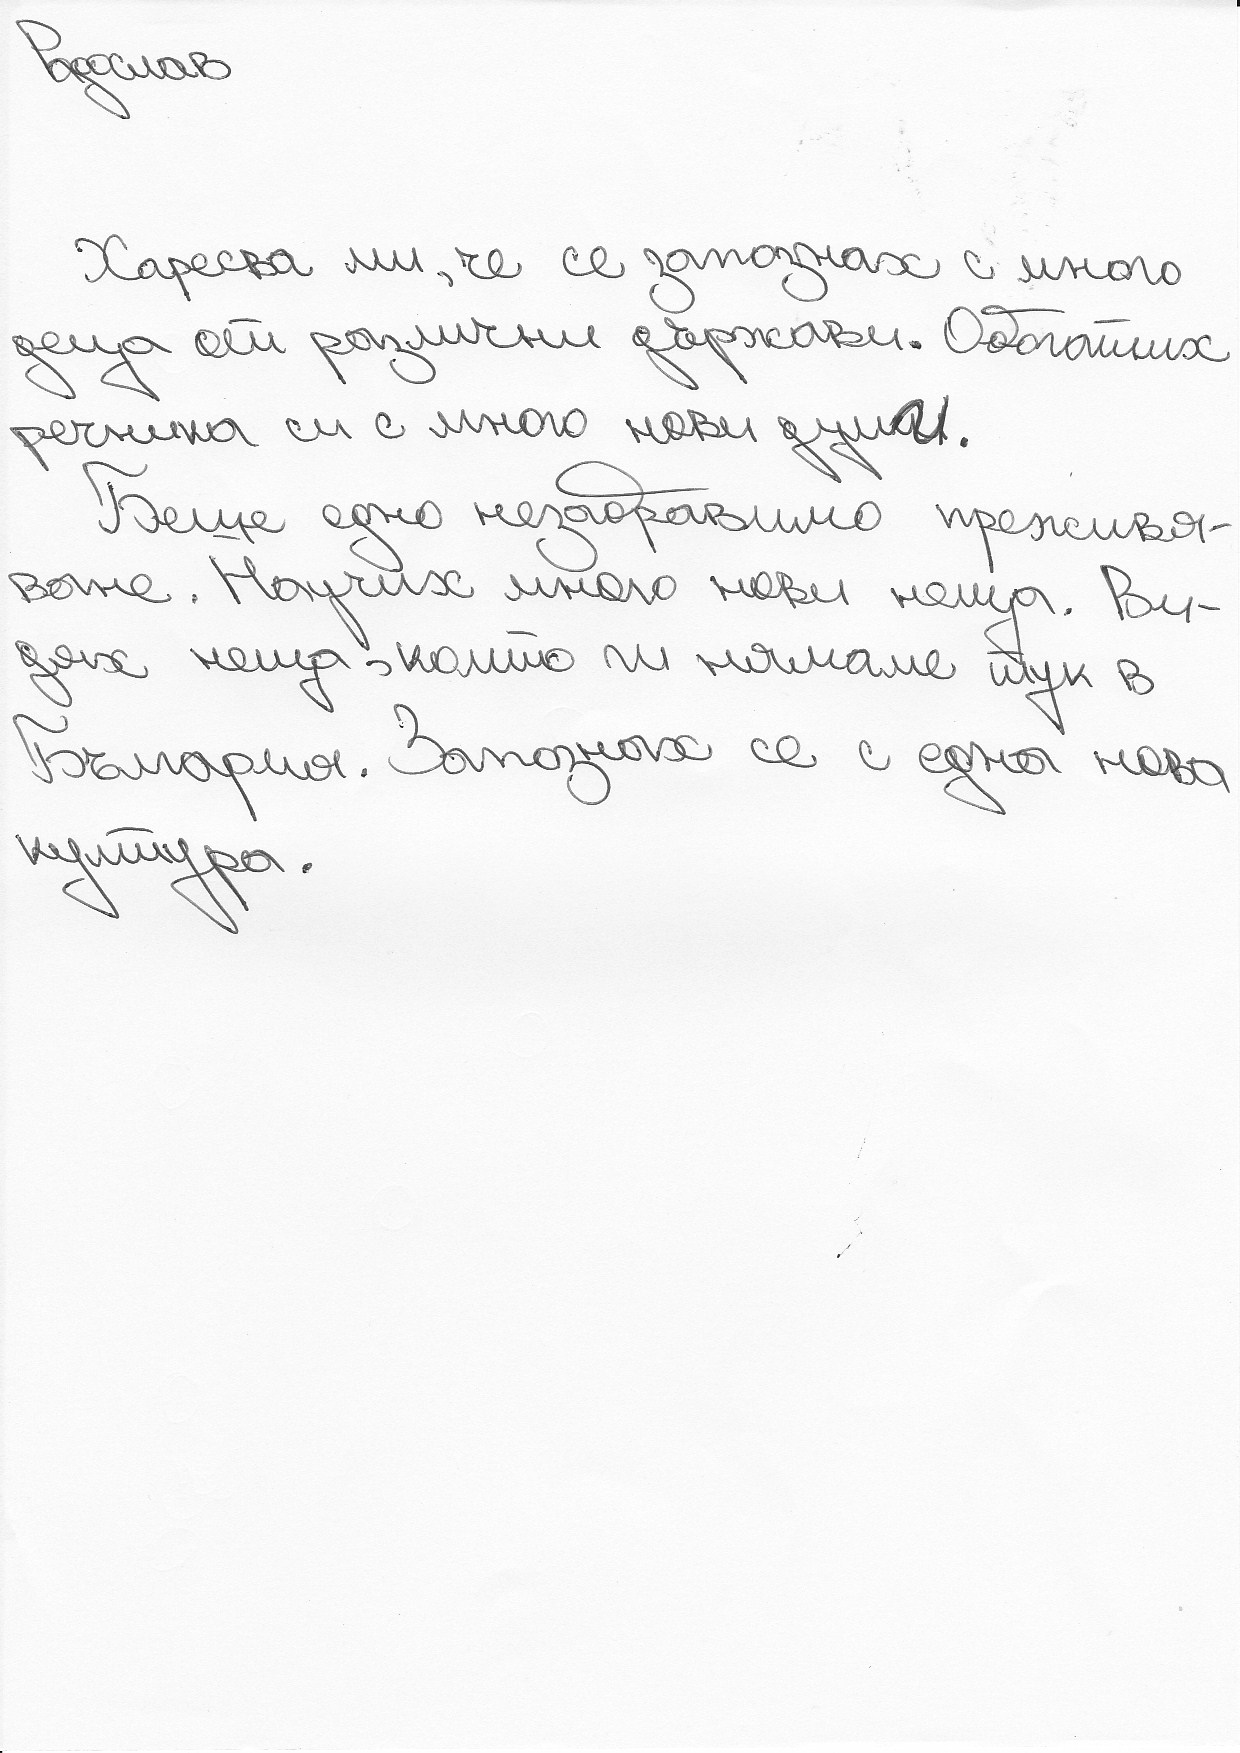 Радослав
Харесва ми, че се запознах с много
деца от различни държави. Обогатих
речника си с много нови думи.
Беше едно незабравимо преживя-
ване. Научих много нови неща. Ви-
дях неща, които ги нямаме тук в
България. Запознах се с една нова
култура.